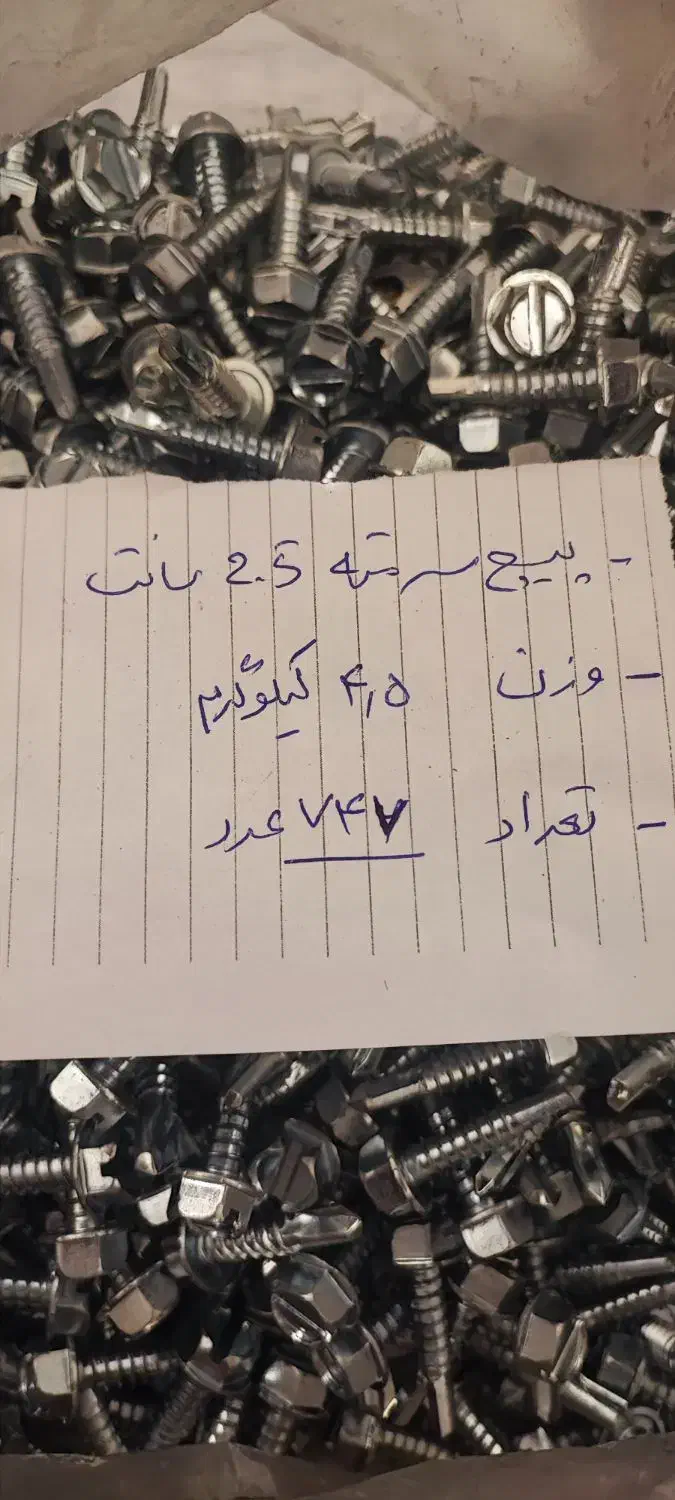 - پیچ سرمته 2.5 سانت
- وزن ۴,۵ کیلوگرم
- تعداد ۷۴۷ عدد